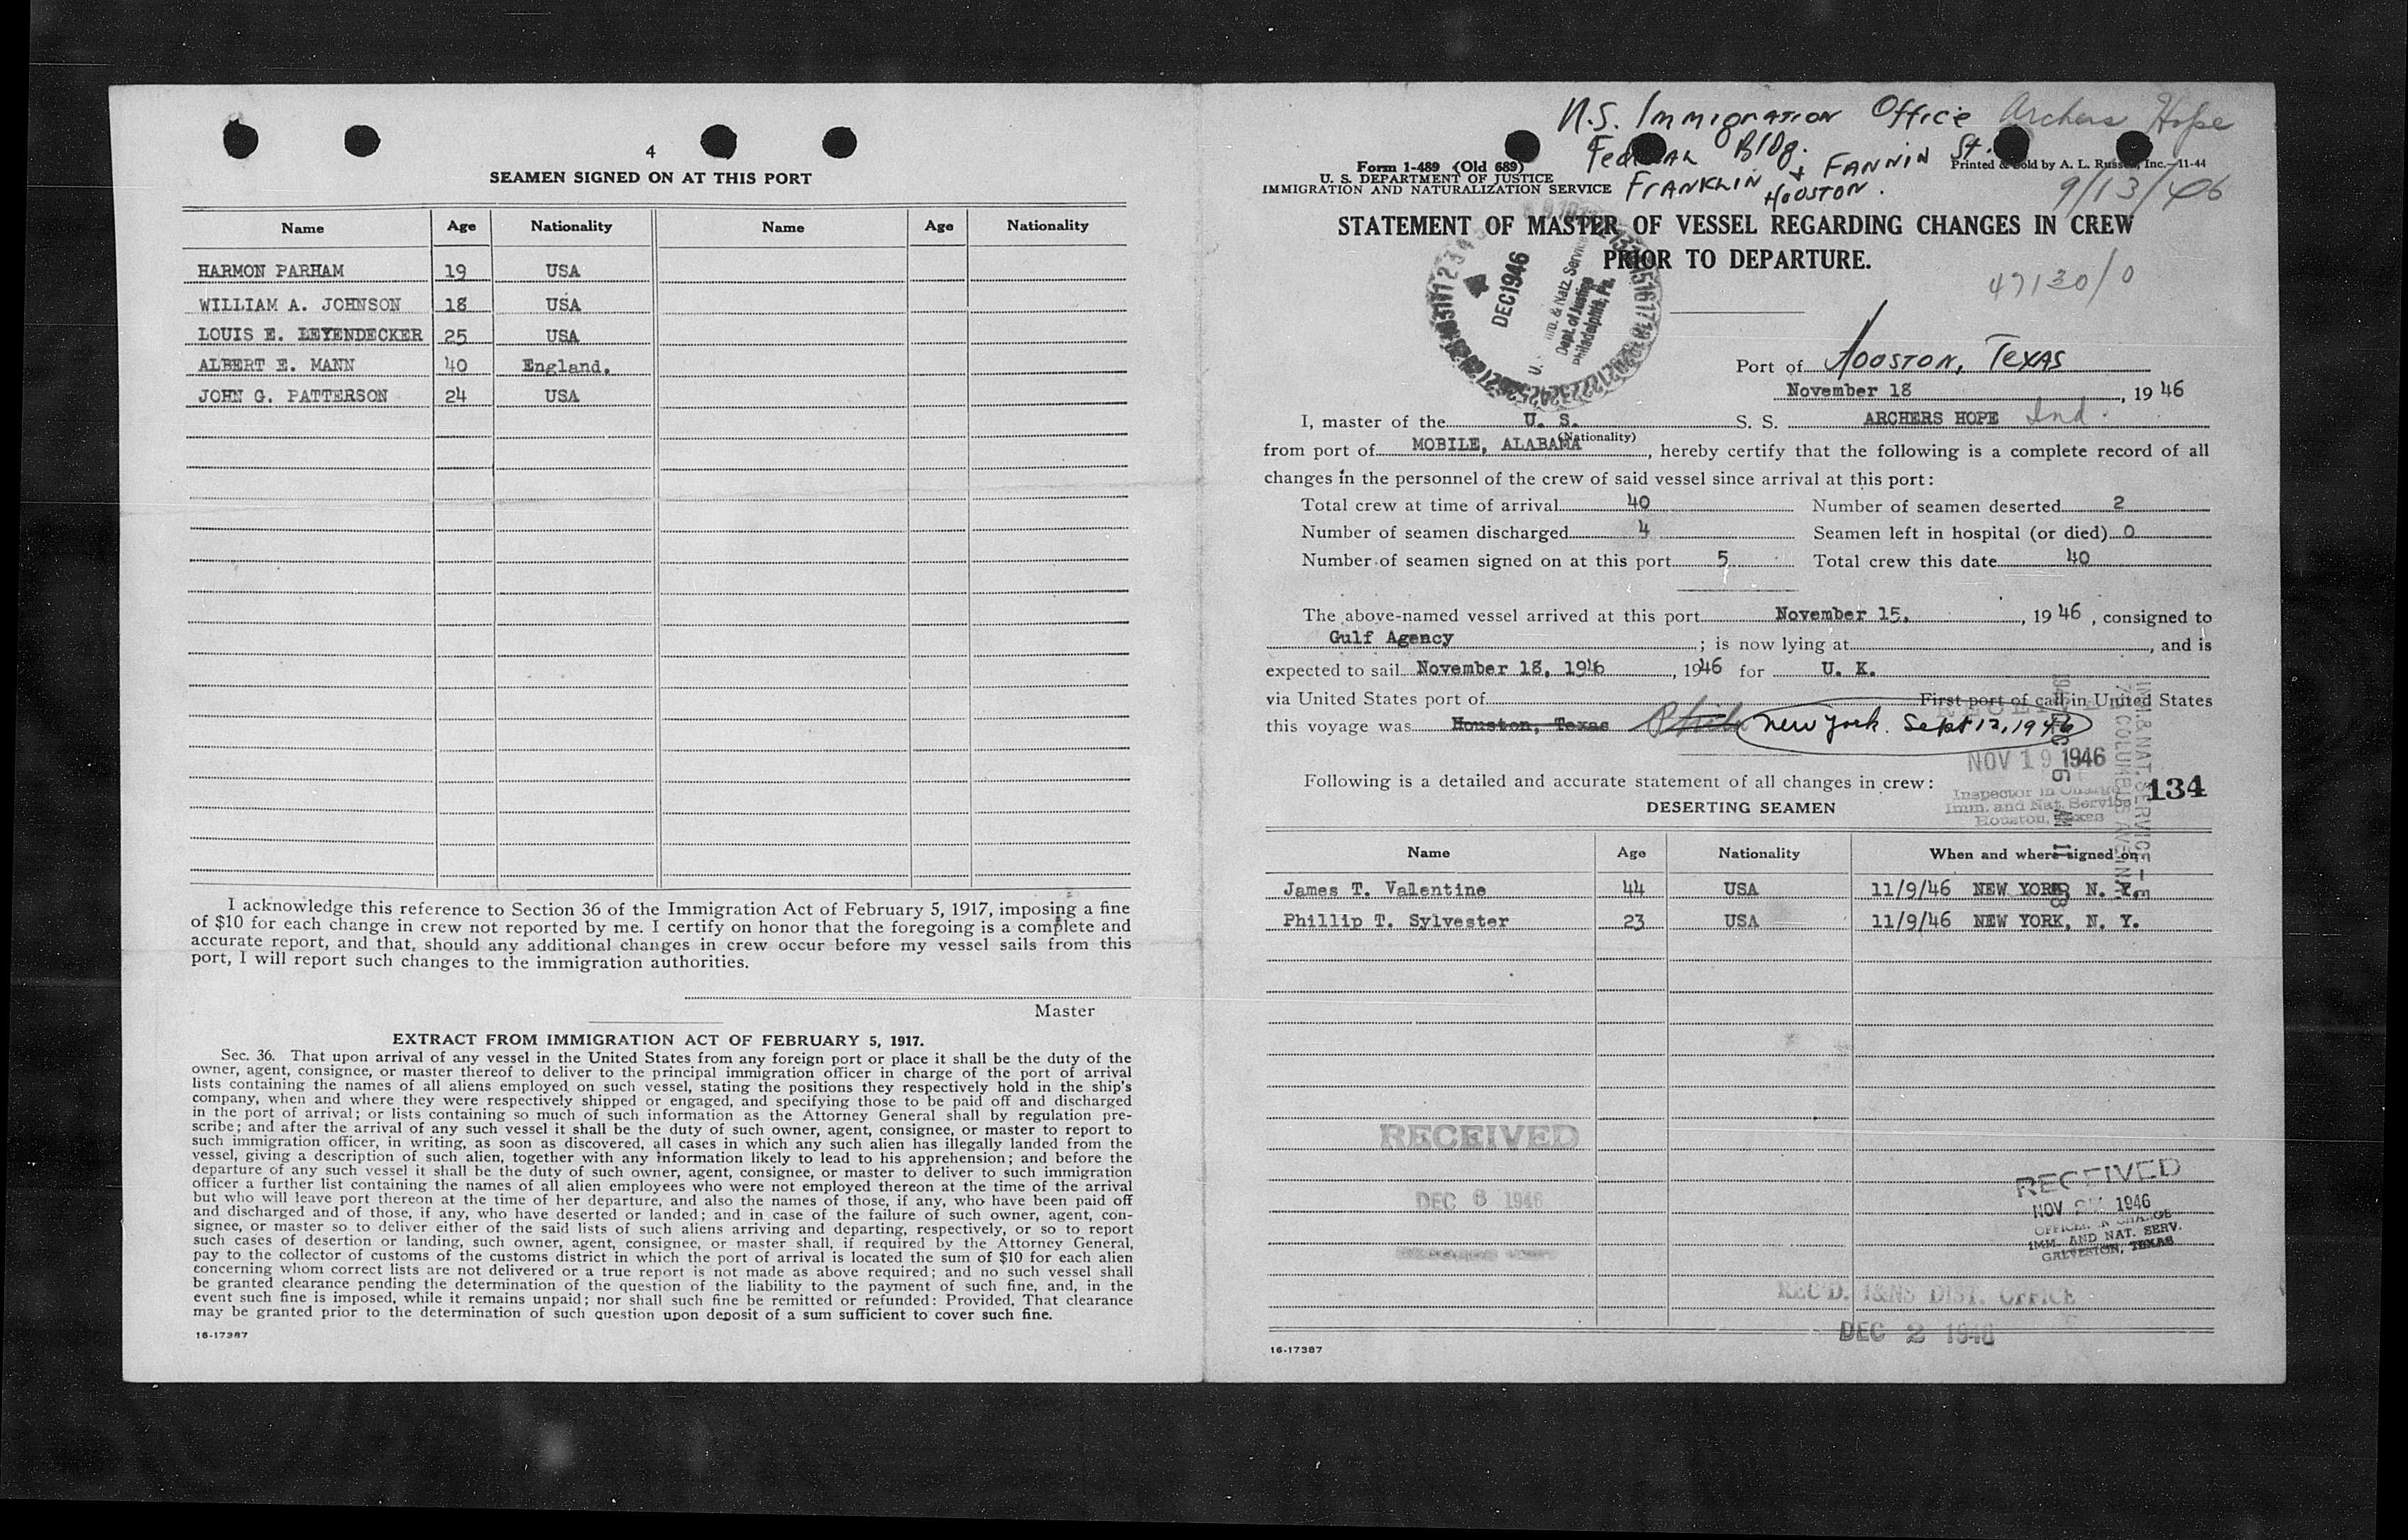 4
SEAMEN SIGNED ON AT THIS PORT
Name Age Nationality Name Age Nationality
HARMON PARHAM 19 USA
WILLIAM A. JOHNSON 18 USA
LOUIS E. LEYENDECKER 25 USA
ALBERT E. MANN 40 England.
JOHN G. PATTERSON 24 USA
I acknowledge this reference to Section 36 of the Immigration Act of February 5, 1917, imposing a fine
of $10 for each change in crew not reported by me. I certify on honor that the foregoing is a complete and
accurate report, and that, should any additional changes in crew occur before my vessel sails from this
port, I will report such changes to the immigration authorities.
Master
EXTRACT FROM IMMIGRATION ACT OF FEBRUARY 5, 1917.
Sec. 36. That upon arrival of any vessel in the United States from any foreign port or place it shall be the duty of the
owner, agent, consignee, or master thereof to deliver to the principal immigration officer in charge of the port of arrival
lists containing the names of all aliens employed on such vessel, stating the positions they respectively hold in the ship's
company, when and where they were respectively shipped or engaged, and specifying those to be paid off and discharged
in the port of arrival; or lists containing so much of such information as the Attorney General shall by regulation pre-
scribe; and after the arrival of any such vessel it shall be the duty of such owner, agent, consignee, or master to report to
such immigration officer, in writing, as soon as discovered, all cases in which any such alien has illegally landed from the
vessel, giving a description of such alien, together with any information likely to lead to his apprehension; and before the
departure of any such vessel it shall be the duty of such owner, agent, consignee, or master to deliver to such immigration
officer a further list containing the names of all alien employees who were not employed thereon at the time of the arrival
but who will leave port thereon at the time of her departure, and also the names of those, if any, who have been paid off
and discharged and of those, if any, who have deserted or landed; and in case of the failure of such owner, agent, con-
signee, or master so to deliver either of the said lists of such aliens arriving and departing, respectively, or so to report
such cases of desertion or landing, such owner, agent, consignee, or master shall, if required by the Attorney General,
pay to the collector of customs of the customs district in which the port of arrival is located the sum of $10 for each alien
concerning whom correct lists are not delivered or a true report is not made as above required; and no such vessel shall
be granted clearance pending the determination of the question of the liability to the payment of such fine, and, in the
event such fine is imposed, while it remains unpaid; nor shall such fine be remitted or refunded: Provided, That clearance
may be granted prior to the determination of such question upon deposit of a sum sufficient to cover such fine.
16-17387
U.S. Immigration Office Archers Hope
Federal Bldg.
Franklin & Fannin St.
Houston.
Form I-489 (Old 689)
U. S. DEPARTMENT OF JUSTICE
IMMIGRATION AND NATURALIZATION SERVICE
Printed & Sold by A. L. Russell, Inc.—11-44
9/13/46
STATEMENT OF MASTER OF VESSEL REGARDING CHANGES IN CREW
PRIOR TO DEPARTURE.
47130/0
4 DEC 1946
Dept. of Justice
Philadelphia, Pa.
Port of Houston, Texas
November 18, 1946
I, master of the U. S. S. S. ARCHERS HOPE Ind.
(Nationality)
from port of MOBILE, ALABAMA, hereby certify that the following is a complete record of all
changes in the personnel of the crew of said vessel since arrival at this port:
Total crew at time of arrival 40 Number of seamen deserted 2
Number of seamen discharged 4 Seamen left in hospital (or died) 0
Number of seamen signed on at this port 5 Total crew this date 40
The above-named vessel arrived at this port November 15, 1946, consigned to
Gulf Agency; is now lying at, and is
expected to sail November 18, 1946, 1946 for U. K.
via United States port of First port of call in United States
this voyage was Houston, Texas Phila New York. Sept 12, 1946
NOV 19 1946
Following is a detailed and accurate statement of all changes in crew:
Inspector in Charge
Imm. and Nat. Service
Houston, Texas
134
DESERTING SEAMEN
Name Age Nationality When and where signed on
James T. Valentine 44 USA 11/9/46 NEW YORK, N. Y.
Phillip T. Sylvester 23 USA 11/9/46 NEW YORK, N. Y.
RECEIVED
DEC 6 1946
RECEIVED
NOV 1946
OFFICER IN CHARGE
IMM. AND NAT. SERV.
GALVESTON, TEXAS
REC'D. I&NS DIST. OFFICE
DEC 2 1946
16-17387